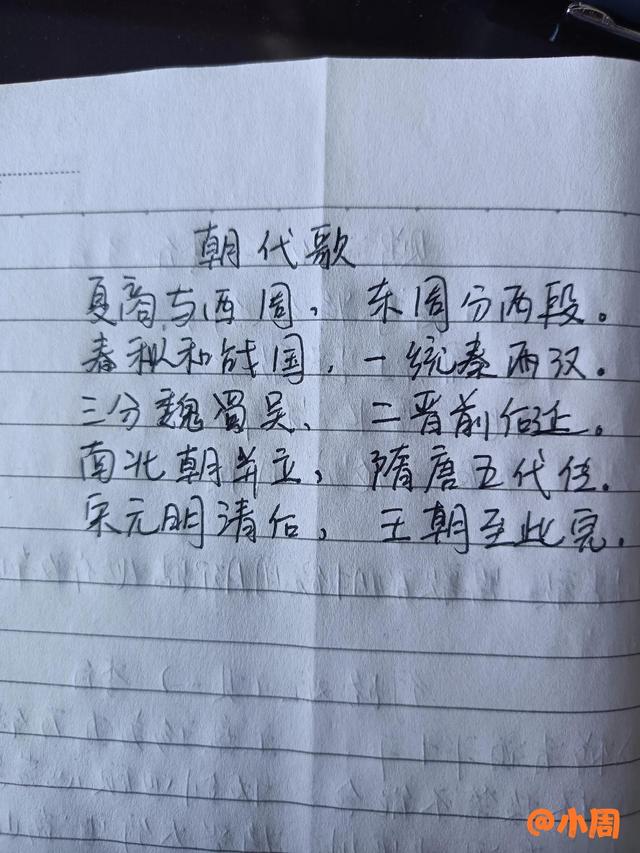 朝代歌
夏商与西周，东周分两段。
春秋和战国，一统秦两汉。
三分魏蜀吴，二晋前后延。
南北朝并立，隋唐五代传。
宋元明清后，王朝至此完。
@小周